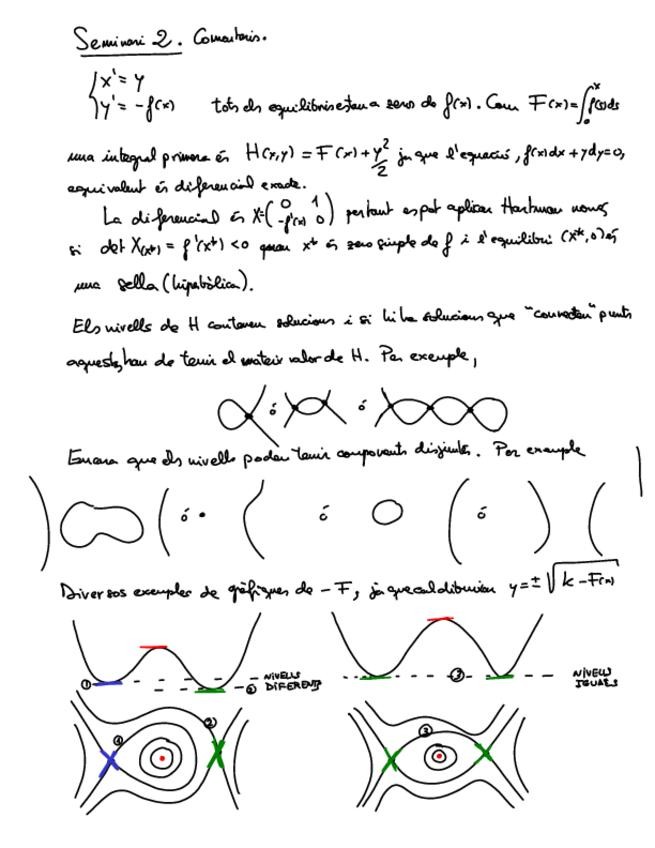 Seminari 2. Comentaris.
{ x' = y
y' = -f(x) tots els equilibris estan a zeros de f(x). Com F(x) = ∫₀ˣ f(s)ds
una integral primera és H(x,y) = F(x) + y²/2 ja que l'equació, f(x)dx + ydy = 0,
equivalent és diferencial exacte.
La diferencial és X = ( 0 1
-f'(x) 0 ) per tant es pot aplicar Hartman només
si det X(x*) = f'(x*) < 0 quan x* és zero simple de f i l'equilibri (x*, 0) és
una sella (hiperbòlica).
Els nivells de H contenen solucions i si hi ha solucions que "connecten" punts
aquests han de tenir el mateix valor de H. Per exemple,
ó ó
Encara que els nivells poden tenir components disjuntes. Per exemple
ó ó ó
Diversos exemples de gràfiques de -F, ja que cal dibuixar y = ± √k - F(x)
① NIVELLS DIFERENTS ②
③ NIVELLS IGUALS
① ②
③